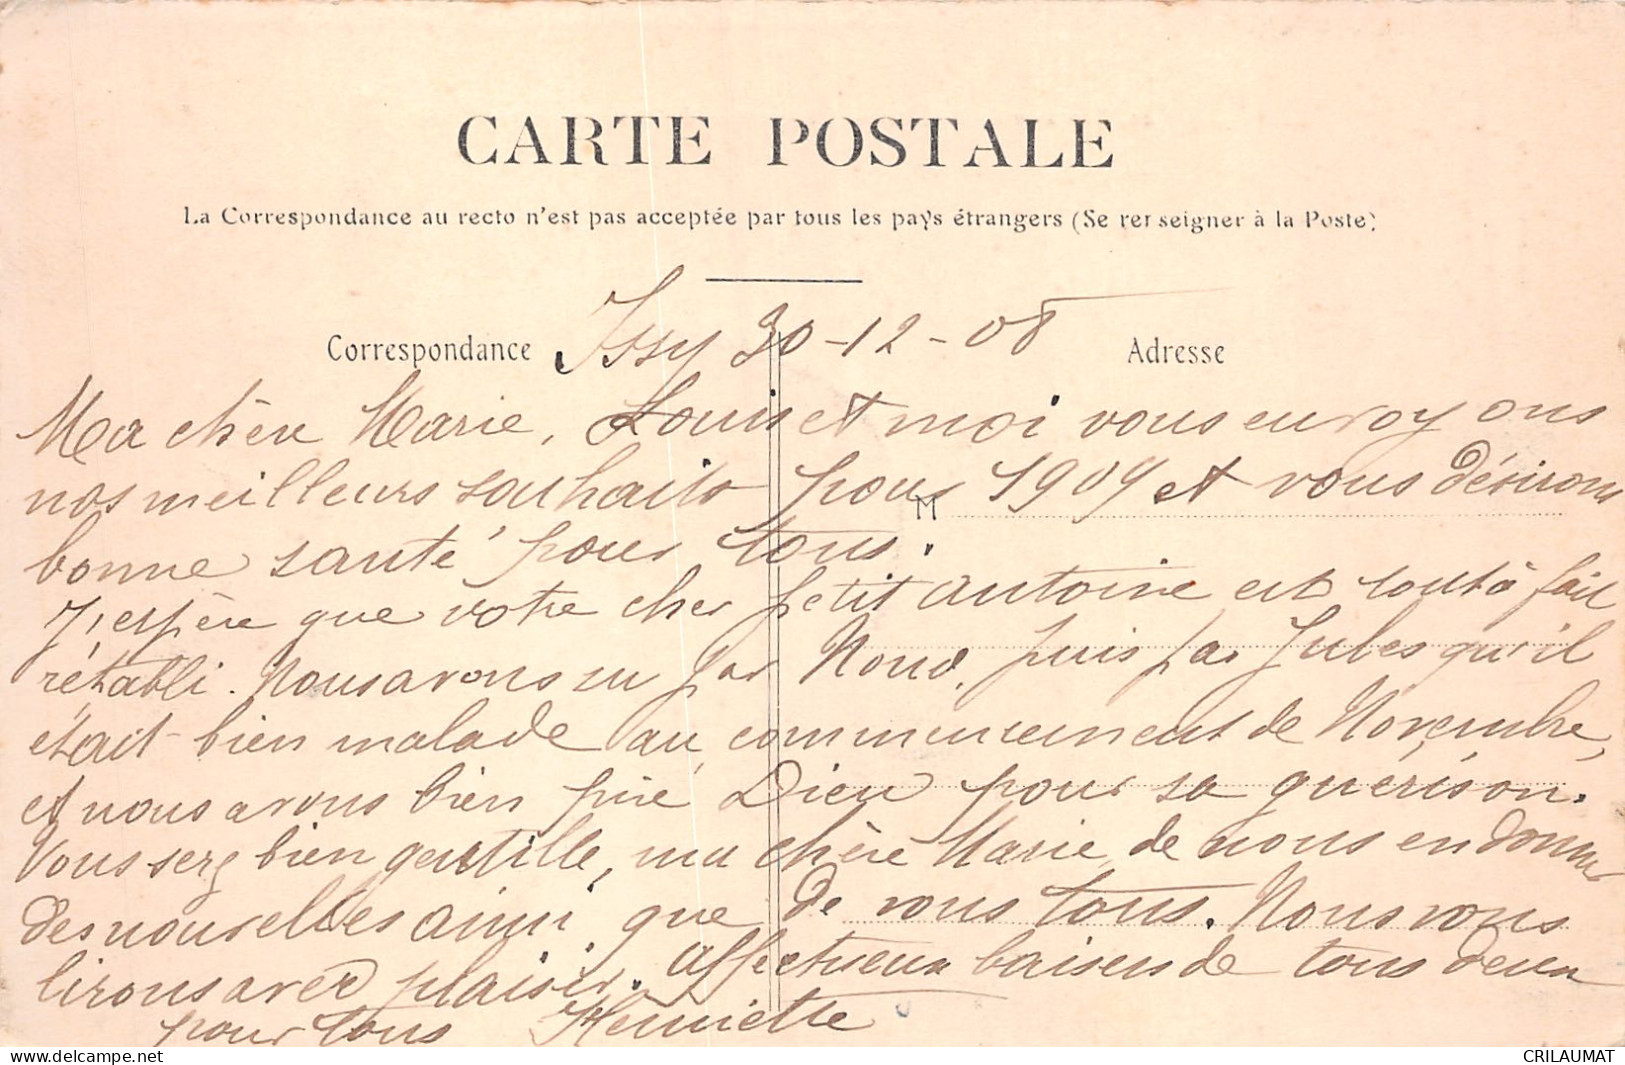 CARTE POSTALE
La Correspondance au recto n'est pas acceptée par tous les pays étrangers (Se renseigner à la Poste)
Correspondance Issy 30-12-08 Adresse
Ma chère Marie, Louis et moi vous envoyons
nos meilleurs souhaits pour 1909 et vous désirons
M
bonne santé pour tous.
J'espère que votre cher petit Antoine est tout à fait
rétabli. Nous avons su par puis par Jules qu'il
était bien malade au commencement de Novembre,
et nous avons bien prié Dieu pour sa guérison.
Vous serez bien gentille, ma chère Marie, de nous en donner
des nouvelles ainsi que de vous tous. Nous vous
lirons avec plaisir. Affectueux baisers de tous deux
pour tous Henriette
delcampe.net
CRILAUMAT